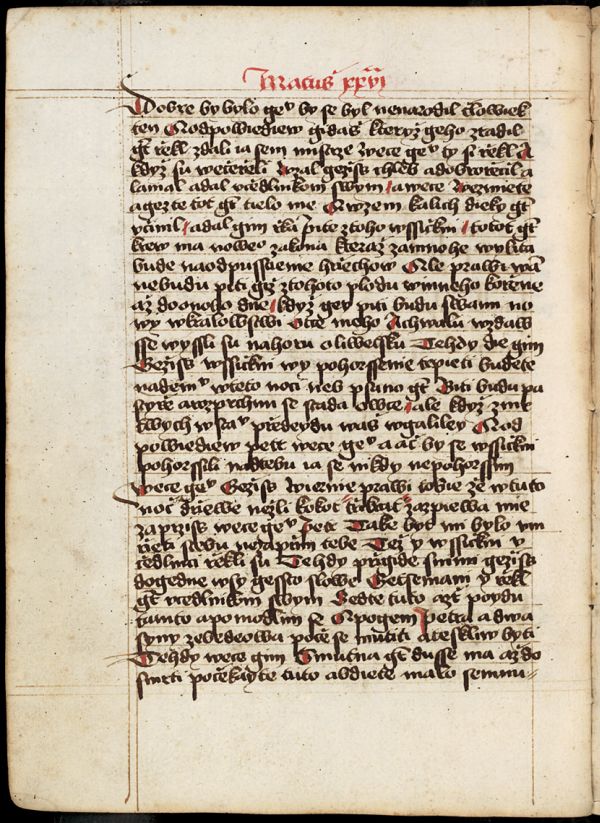 Matus xxvi
Dobre by bylo gemu by se byl nenarodil člowiek
ten A odpowiediew gidaš kteryž geho zradil
gt řekl zdali ia sem mistrze wece gemu ty si řekl A
když su wečeřeli wzal gežiss chleb a dobrořečil a
lamal a dal včedlnikom swym a wece wezmiete
a gezte tot gt tielo me A wzem kalich dieky gt
včinil a dal gim řka pite z toho wssickni totot gt
krew ma noweo zakona kteraž za mnohe wylita
bude na odpussčenie hřiechow Ale prawi wā
nebudu piti giž z tohoto plodu winneho kořene
až do onoho dne když gey piti budu s wami no
wy w kralowstwi otce meho A chwalu wzdaw
sse wyssli su na horu oliwetsku Tehdy die gim
Gežiss wssickni wy pohorssenie trpieti budete
nademnu w teto noci neb psano gt Biti budu pa
styře a rozprchnu se stada owce ale když z mr
twych wstanu předeydu was w galiley A od
powiediew petr wece gemu a ač by se wssickni
pohorssili nad tebu ia se nikdy nepohorssim
wece gemu Gežiss wiernie prawi tobie že w tuto
noc dřiewe nežli kokot třikrat zazpiewa mie
zapřiss wece gemu petr Take byt mi bylo um
řieti s tebu nezapřim tebe Tež y wssickni v
čedlnici řekli su Tehdy přigide s nimi gežiss
do gedne wsy gessto slowe Getsemani y řekl
gt včedlnikom swym Sedte tuto ažt poydu
tamto a pomodlim se A pogem petra a dwa
syny zebedeowa poče se mutiti a teskliw byti
Tehdy wece gim Smutna gt dusse ma až do
smrti počekayte tuto a bdiete malo se mnu